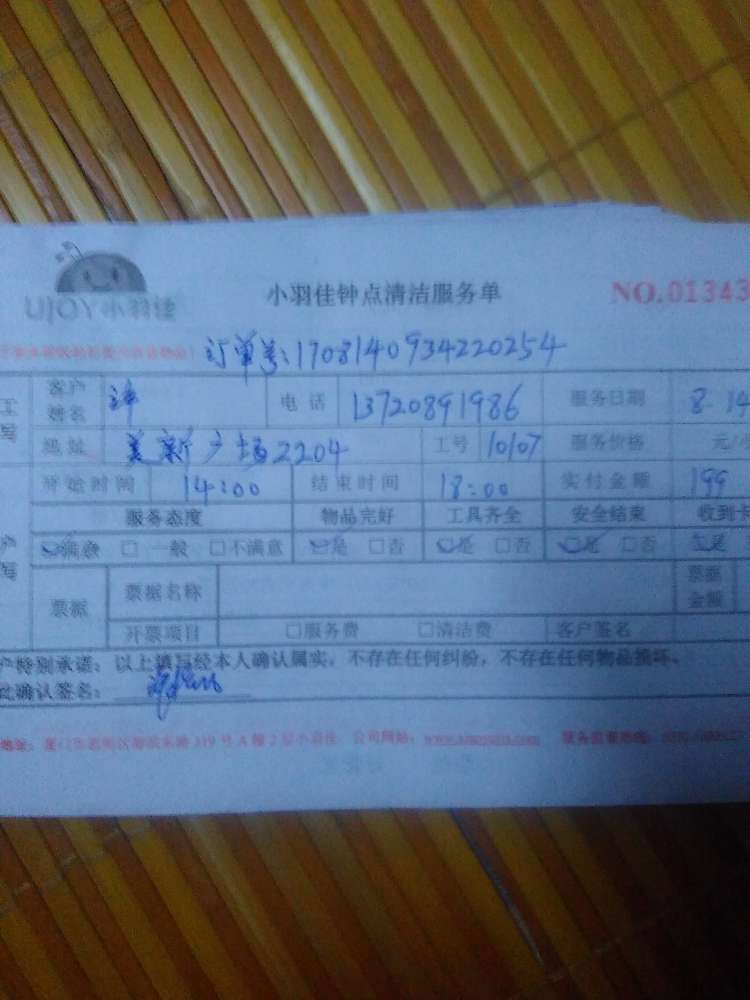 UJOY小羽佳
小羽佳钟点清洁服务单
NO.01343
订单号:1708140934220254
客户姓名 电话 13720891986 服务日期 8.14
地址 美新广场2204 工号 10107 服务价格 元/
开始时间 14:00 结束时间 18:00 实付金额 199
服务态度 物品完好 工具齐全 安全结束 收到卡
满意 □一般 □不满意 是 □否 是 □否 是 □否 是
票据 票据名称 票据金额
开票项目 □服务费 □清洁费 客户签名
户特别承诺:以上填写经本人确认属实,不存在任何纠纷,不存在任何物品损坏。
此确认签名: